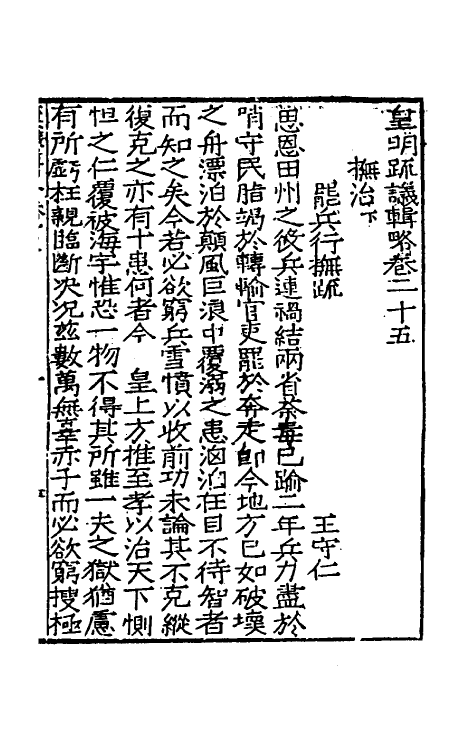 皇明疏議輯略卷二十五
撫治下
罷兵行撫疏
王守仁
思恩田州之役兵連禍結兩省荼毒已踰二年兵力盡於
哨守民脂竭於轉輸官吏罷於奔走即今地方已如破壞
之舟漂泊於顛風巨浪中覆溺之患洶洶在目不待智者
而知之矣今若必欲窮兵雪憤以收前功未論其不克縱
復克之亦有十患何者今 皇上方推至孝以治天下惻
怛之仁覆被海宇惟恐一物不得其所雖一夫之獄猶慮
有所虧枉親臨斷決況茲數萬無辜赤子而必欲窮搜極